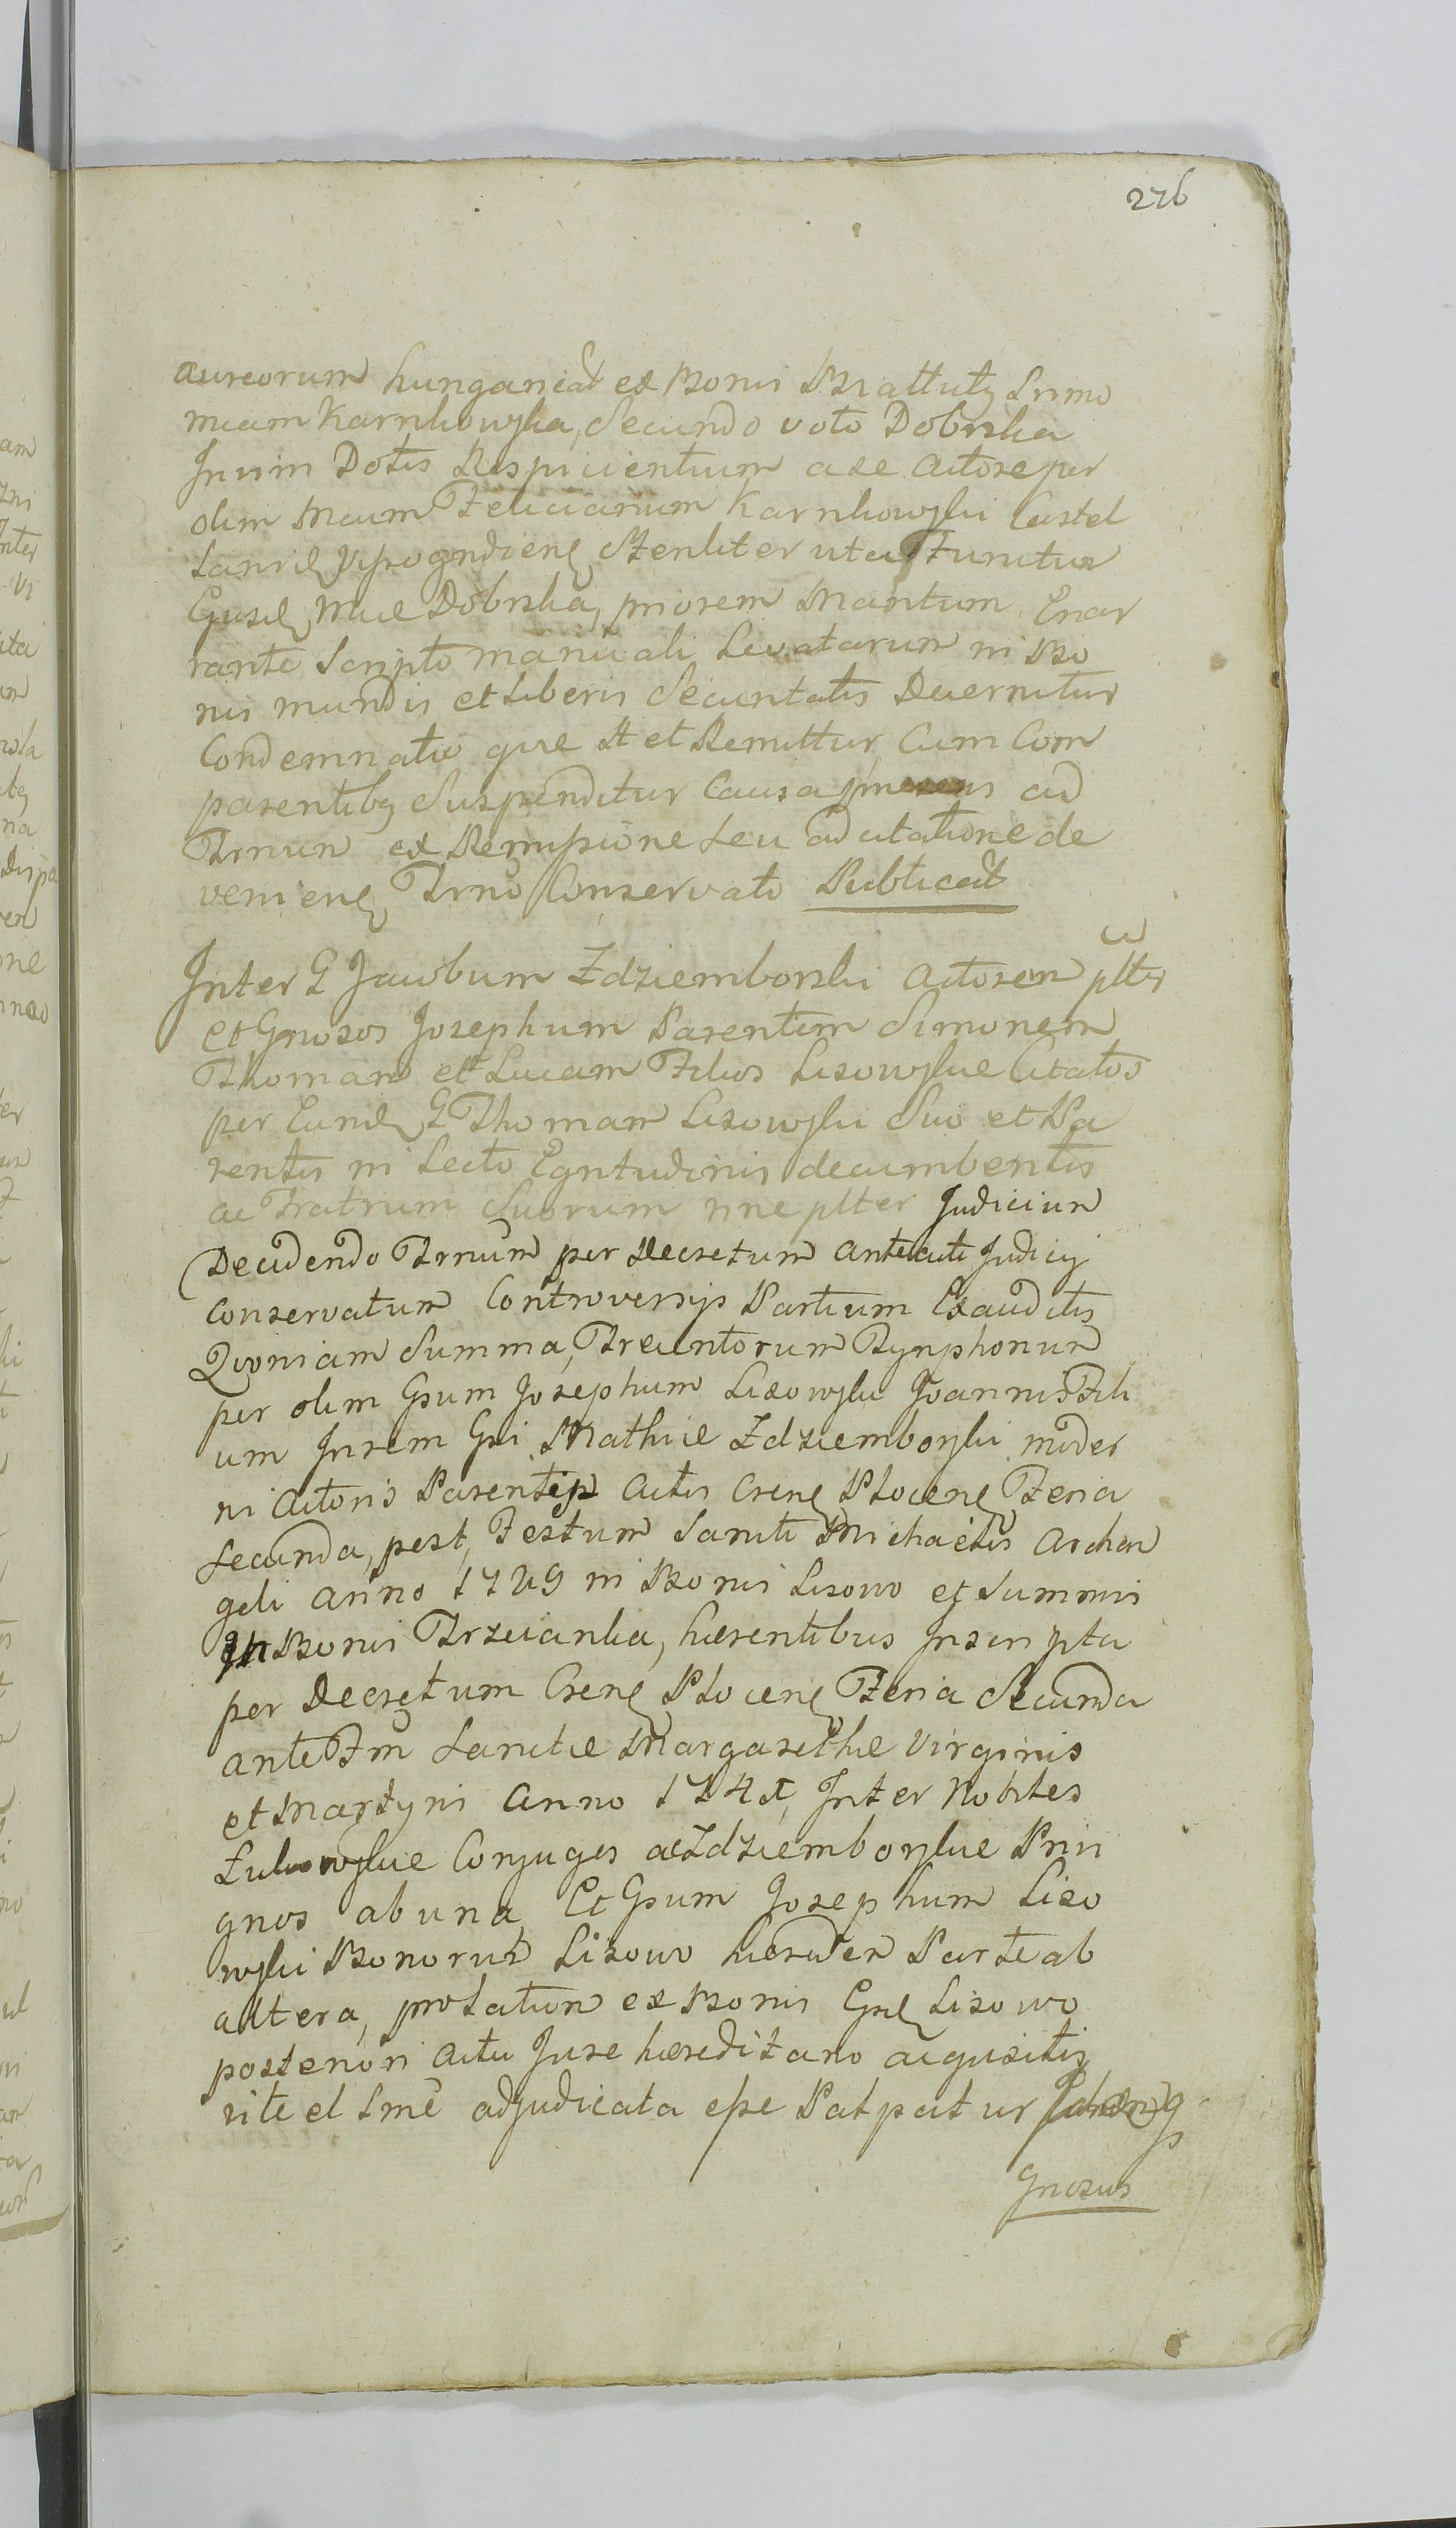 276
aureorum hungarical ex Bonis Brattuty Primo
meam Karnkowska, Secundo voto Dobrska
Dotis Respicientium a se Actore per
olim Mcum Felicianum Karnkowski Castel
Lanu Vyssogrdien utfun
Ejusd Mcae Dobrska, priorem Maritum Enar
rante Scripto manuali Levatarum in Bo
nis mundis et Liberis Securitatis Decernitur
Condemnatio quae st et Remittitur, Cum Com
parentibg Suspenditur Causa praesens ad
Trnum ex Remissione seu ad citatione de
venien Trno Conservato Publicat
Inter G Jacobum Zdziemborski Actorem pltr
et Gnosos Josephum Parentem Simonem
Thomam et Lucam Filios Lisowskie Citatos
per Eund G Thomam Lisowski Suo et Pa
rentis in Lecto Egritudinis decumbentis
ac Fratrum Suorum nne plter Judicium
Decidendo Trnum per Decretum anteacti Judicij
Conservatum Controversijs Partium Exauditis
Quoniam Summa, Trecentorum Tynphonum
per olim Gsum Josephum Lisowski Joannis Fili
um Inrem Gsi Mathiae Zdziemborski moder
ni Actoris Parentis Actis Crens Plocens Feria
Secunda, post, Festum Sancti Michaelis Archan
geli Anno 1729 in Bonis Lisowo et Summis
in Bonis Trzcianka, haerentibus Inscripta
per Decretum Crens Plocens Feria Secunda
ante Fm Sanctae Margarethae Virginis
et Martyris Anno 174, Inter Nobiles
Żukowskie Conjuges ac Zdziemborskie Privi
gnos ab una, Et Gsum Josephum Liso
wski Bonorum Lisowo haeredem Parte ab
altera, prolatum ex Bonis Gsd Lisowo
posteriori actu Jure haereditario acquisitis
rite et Lme adjudicata esse Patpat ur
Gnosus